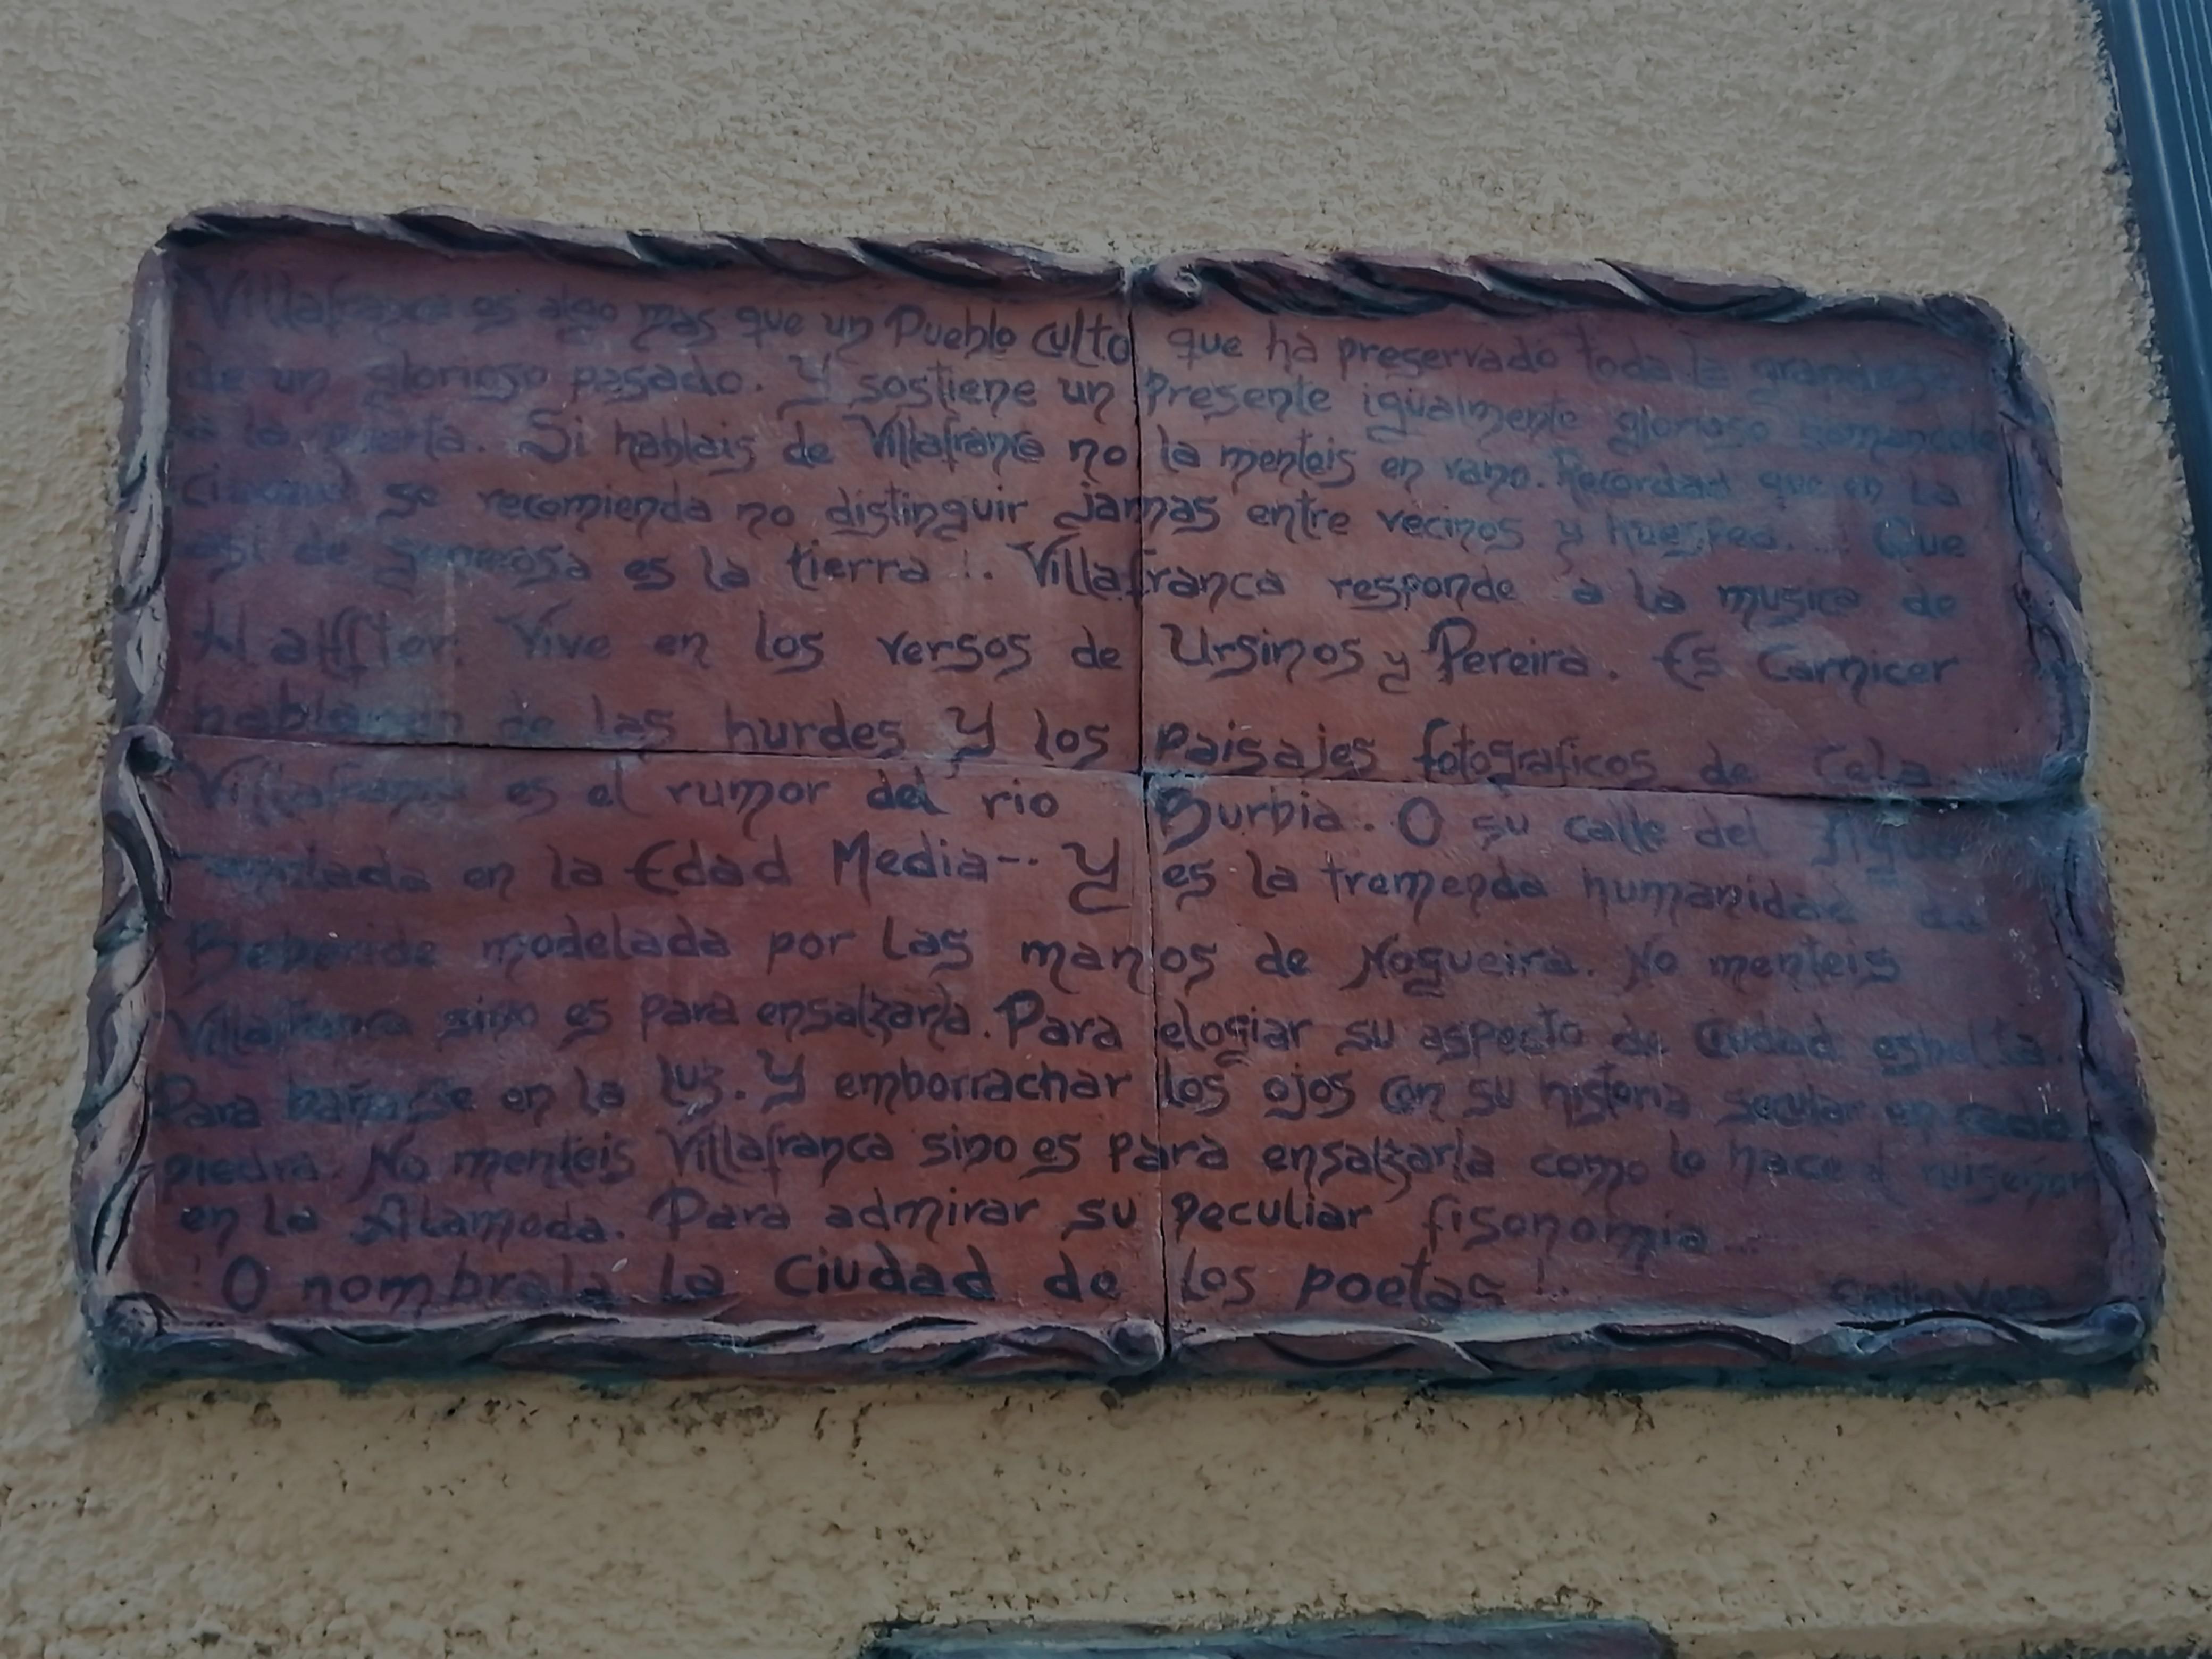 Villafranca es algo mas que un Pueblo culto que ha preservado toda la grandeza
de un glorioso pasado. Y sostiene un Presente igualmente glorioso
a la puerta. Si hablais de Villafranca no la menteis en vano. Recordad que en la
Ciudad se recomienda no distinguir jamas entre vecinos y huesped.... Que
asi de generosa es la tierra !. Villafranca responde a la musica de
Halffter. Vive en los versos de Ursinos y Pereira. Es Carnicer
hablando de las hurdes Y los paisajes fotograficos de Cela.
Villafranca es el rumor del rio Burbia. O su calle del Agua
en la Edad Media-- Y es la tremenda humanidad de
Beberide modelada por las manos de Nogueira. No menteis
Villafranca sino es para ensalzarla. Para elogiar su aspecto de Ciudad esbelta.
Para bañarse en la luz. Y emborrachar los ojos con su historia secular en cada
piedra. No menteis Villafranca sino es para ensalzarla como lo hace el ruiseñor
en la Alameda. Para admirar su peculiar fisonomia...
! O nombrala la Ciudad de los poetas !.